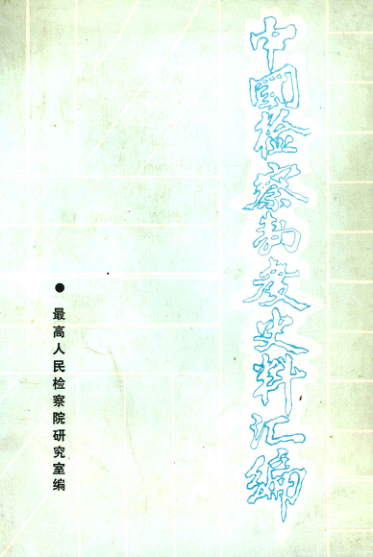 中国检察制度史料汇编
●最高人民检察院研究室编